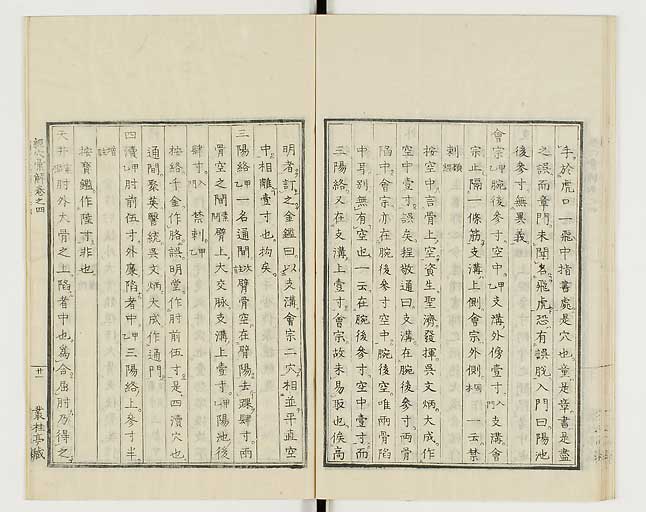 手於虎口一飛中指書處是穴也童是章書是盡
之誤而章門未聞名飛虎恐有誤脫入門曰陽池
後參寸無異義
會宗甲乙腕後參寸空中甲乙支溝外傍壹寸入門支溝會
宗上隔一條筋支溝上側會宗外側一云禁
刺類經
按空中言骨上空資生聖濟發揮吳文炳大成作
空中壹寸誤矣程敬通曰支溝在腕後參寸兩骨
陷中會宗亦在腕後參寸空中腕後空唯兩骨陷
中耳別無有空也一云在腕後參寸空中壹寸而
三陽絡又在支溝上壹寸會宗故未易取也俟高
明者訂之金鑑曰以支溝會宗二穴相並平直空
中相離壹寸也拘矣
三陽絡甲乙一名通間臂骨空在臂陽去踝肆寸兩
骨空之間臂上大交脉支溝上壹寸甲乙陽池後
肆寸入門禁刺甲乙
按絡千金作胳誤明堂作肘前伍寸是四瀆穴也
通間聚英醫統吳文炳大成作通門
四瀆甲乙肘前伍寸外廉陷者中甲乙三陽絡上參寸半
按寶鑑作陸寸非也
天井肘外大骨之上陷者中也為合屈肘乃得之
經穴彙解卷之四
廿一
叢桂亭藏